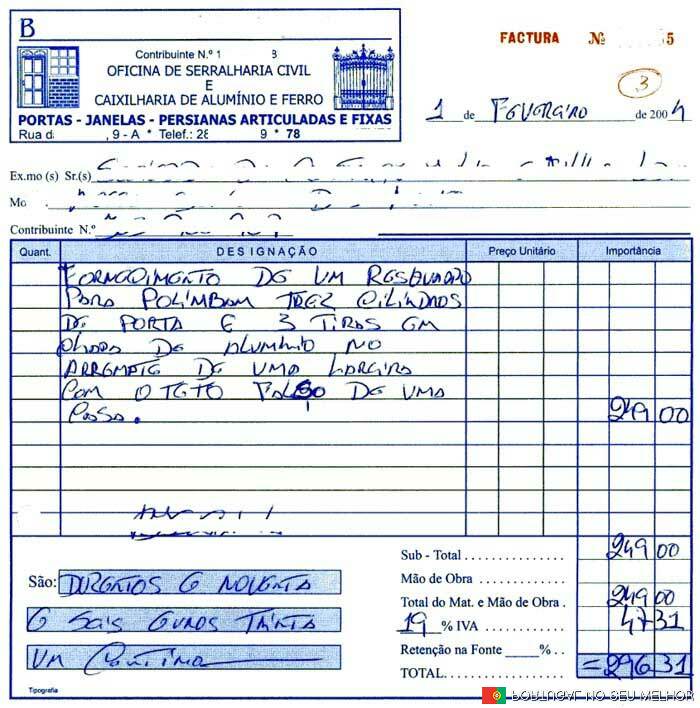 B
Contribuinte N.º 1 8
OFICINA DE SERRALHARIA CIVIL
E
CAIXILHARIA DE ALUMÍNIO E FERRO
PORTAS - JANELAS - PERSIANAS ARTICULADAS E FIXAS
Rua d , 9 - A * Telef.: 28 9 * 78
FACTURA Nº 5
3
1 de Fevereiro de 2004
Ex.mo (s) Sr.(s)
Mo
Contribuinte N.º
Quant. DESIGNAÇÃO Preço Unitário Importância
FORNECIMENTO DE UM RESGUARDO
PARA POLIMBAM TREZ CILINDROS
DE PORTA E 3 TIRAS EM
CHAPA DE ALUMINIO NO
ARREMATE DE UMA LAREIRA
COM O TETO FALSO DE UMA
249 00
Sub - Total 249 00
Mão de Obra
Total do Mat. e Mão de Obra 249 00
19 % IVA 47 31
Retenção na Fonte % .
TOTAL = 296 31
São: DUZENTOS E NOVENTA
E SAIS EUROS TRINTA
UM CENTIMO
Tipografia
PORTUGAL NO SEU MELHOR